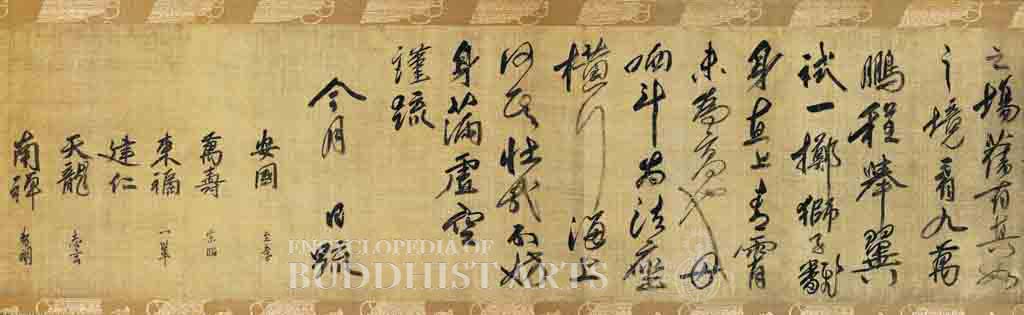 之場蕩有真如
之境看九萬
鵬程舉翼
試一擲獅子翻
身直上青霄
未為高也
斗為法座
橫行海上
何其壯哉不妨
身滿虛空
謹疏
今月 日疏
安國
萬壽
東福
建仁
天龍
南禪
ENCYCLOPEDIA OF
BUDDHIST ARTS